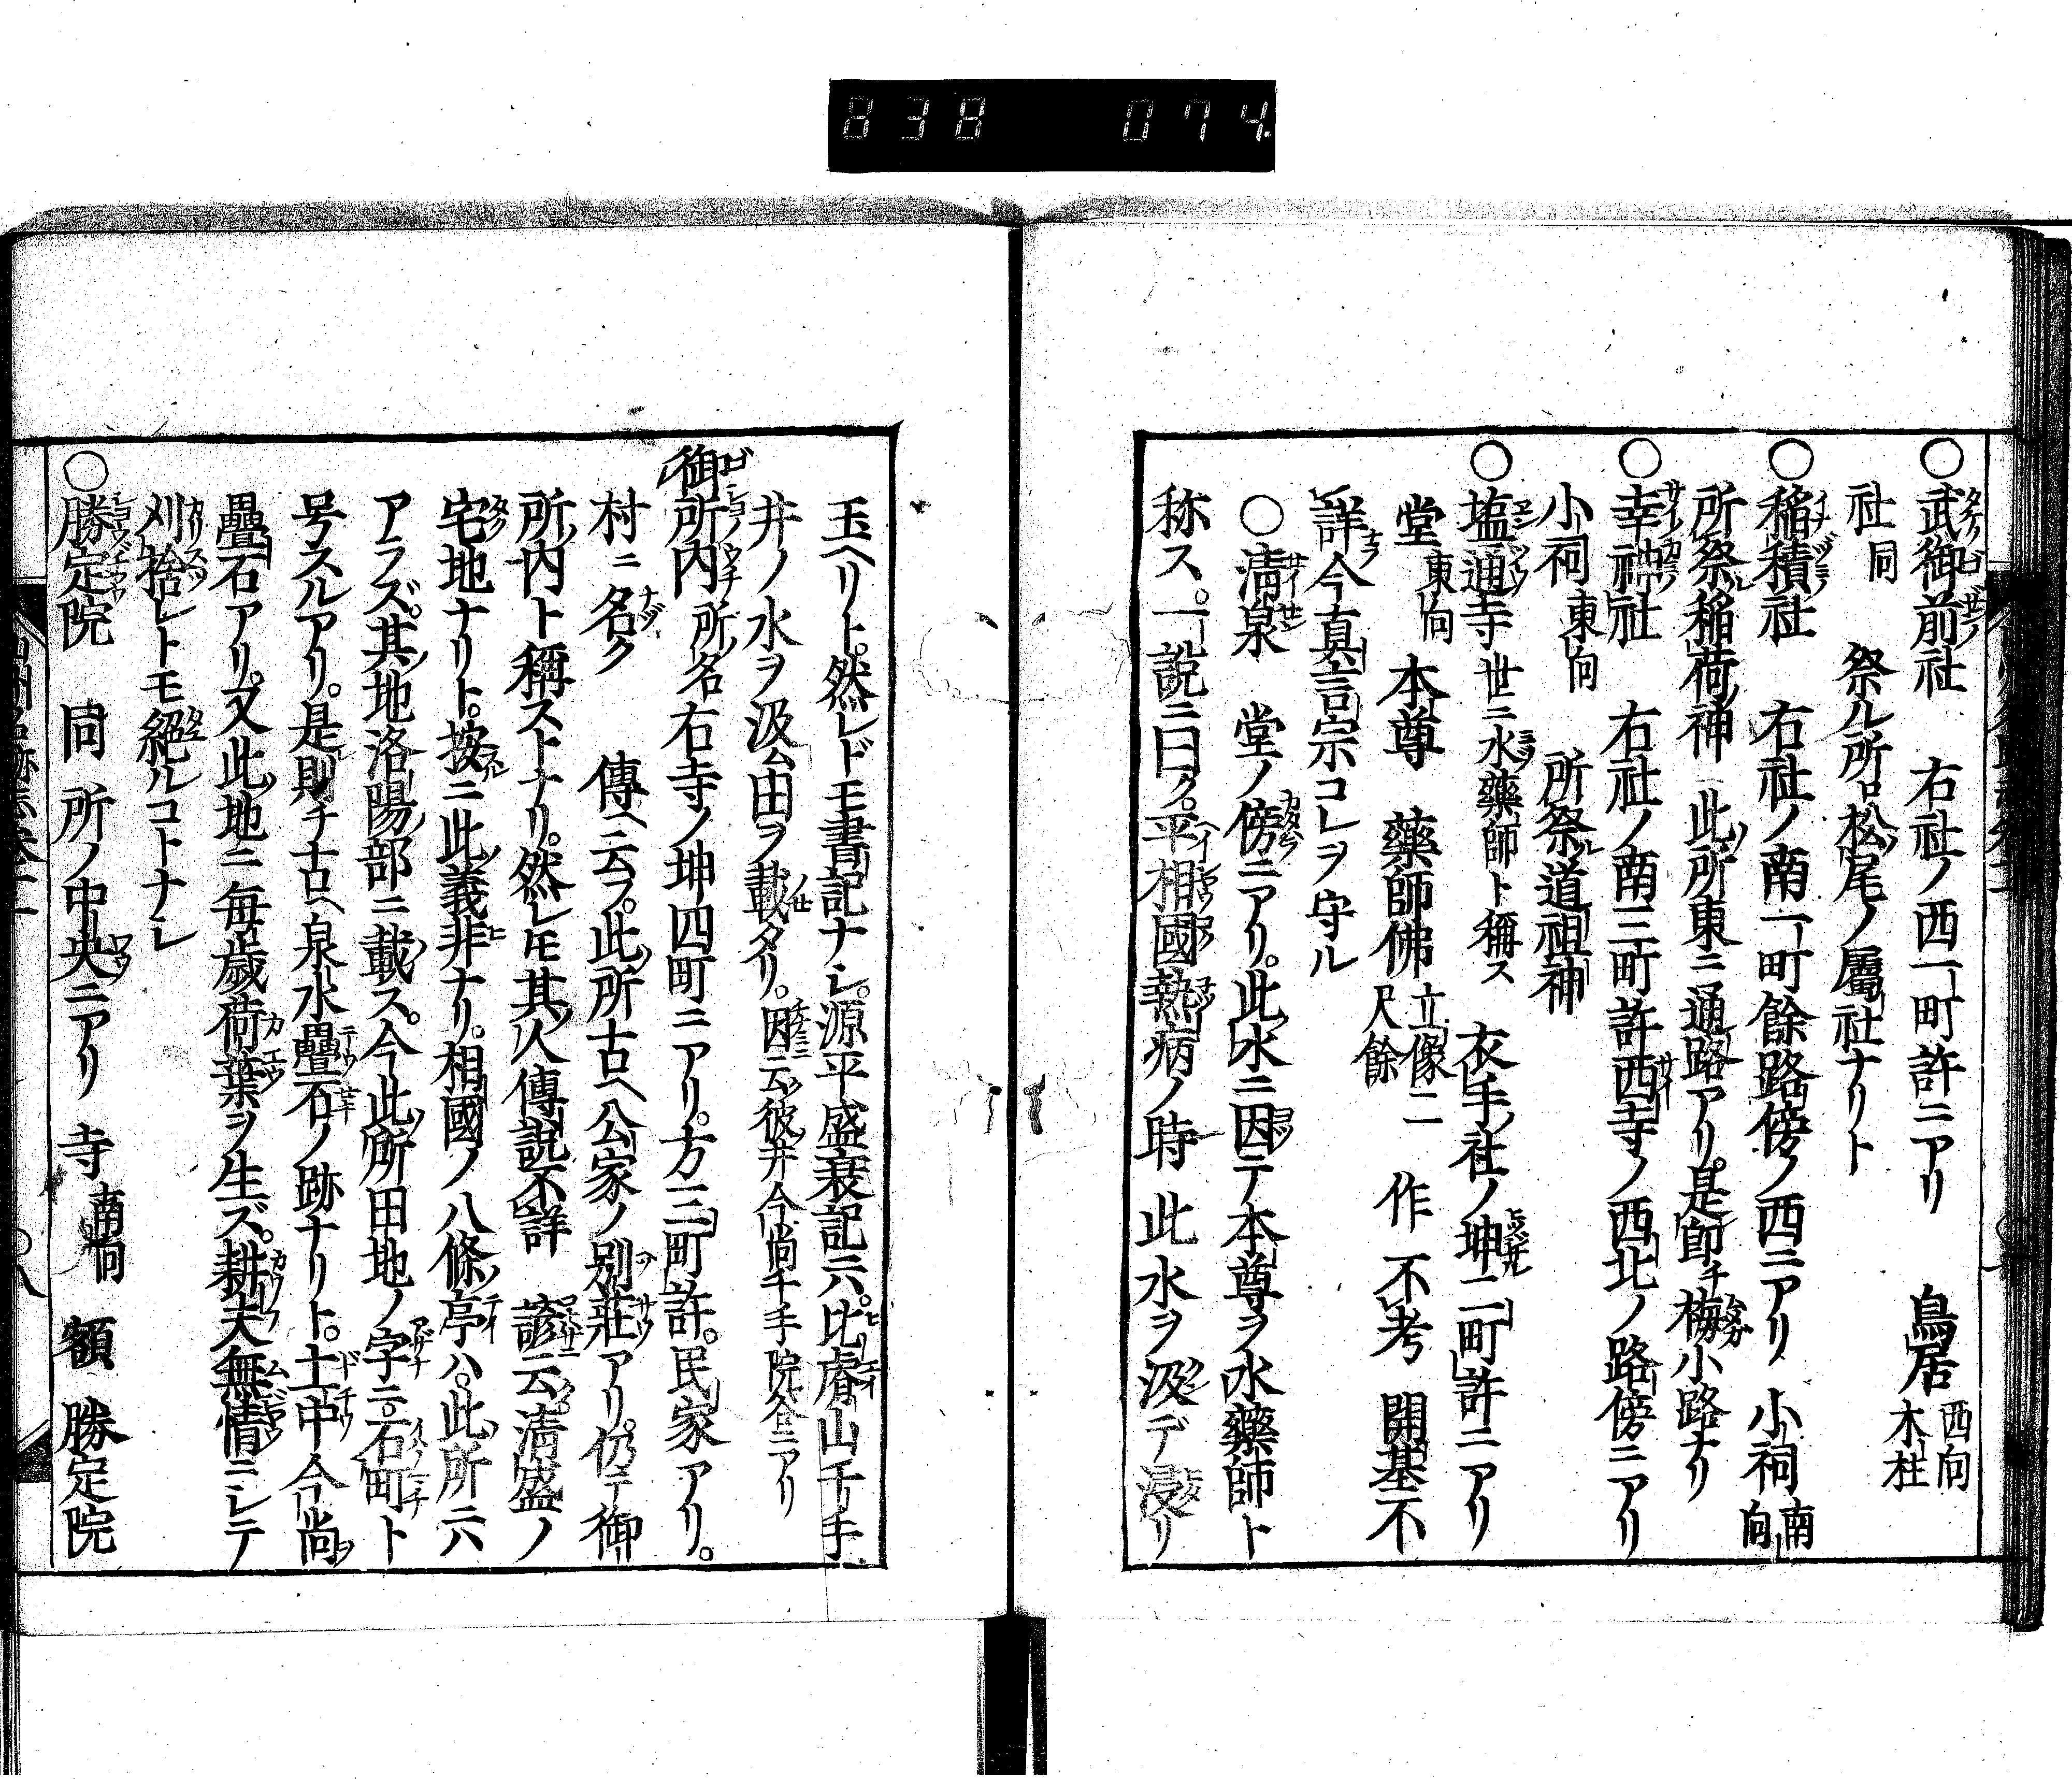 838 074.
○武御前社 右社ノ西一町許ニアリ 鳥居 西向 木柱
社 同 祭ル所ロ松尾ノ屬社ナリト
○稲積社 右社ノ南一町餘路傍ノ西ニアリ 小祠 南向
所祭ル稲荷ノ神 此ノ所東ニ通路アリ是即チ梅小路ナリ
○幸神社 右社ノ南三町許西寺ノ西北ノ路傍ニアリ
小祠 東向 所祭ル道祖神
○塩通寺 世ニ水藥師ト稱ス 衣手ノ社ノ坤二町許ニアリ
堂 東向 本尊 藥師佛 立像二尺餘 作不考 開基不
詳今真言宗コレヲ守ル
○清泉 堂ノ傍ニアリ。此水ニ因テ本尊ヲ水藥師ト
称ス。一説ニ曰ク。平相國熱病ノ時此水ヲ汲デ浸リ
玉ヘリト。然レドモ書記ナシ。源平盛衰記ニハ。比叡山千手
井ノ水ヲ汲ム由ヲ載タリ。因ニ云フ彼井今尚千手院谷ニアリ
御所内 所ノ名右寺ノ坤四町ニアリ。方三町許。民家アリ。
村ニ名ク 傳ヘ云フ。此ノ所古ヘ公家ノ別莊アリ。仍テ御
所ノ内ト稱ストナリ。然レモ其ノ人傳説不詳 諺ニ云フ清盛ノ
宅地ナリト。按ニ此ノ義非ナリ。相國ノ八條ノ亭ハ。此ノ所ニハ
アラズ。其ノ地洛陽部ニ載ス。今此ノ所田地ノ字ニ。石町ト
号スルアリ。是レ則チ古ヘ泉水疊石ノ跡ナリト。土中今尚
疊石アリ。又此ノ地ニ毎歳荷葉ヲ生ズ。耕夫無情ニシテ
刈捨レトモ絕ルコトナシ
○勝定院 同所ノ中央ニアリ 寺 南向 額 勝定院